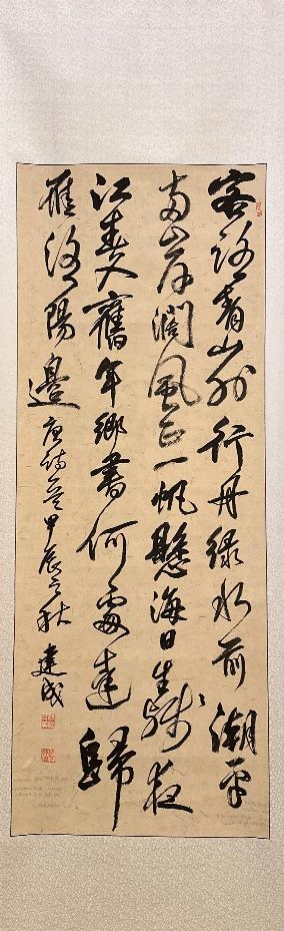 客路青山外行舟綠水前潮平
兩岸闊風正一帆懸海日生殘夜
江春入舊年鄉書何處達歸
雁洛陽邊唐詩一首甲辰之秋建成